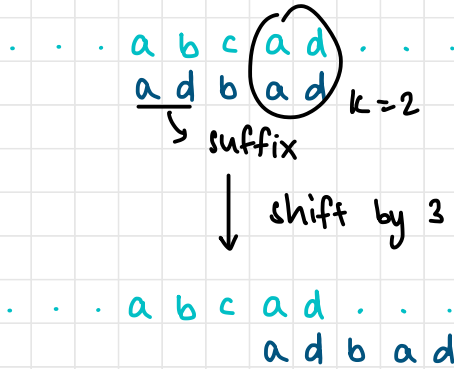 . . . a b c a d . . .
a d b a d k=2
suffix
shift by 3
. . . a b c a d . . .
a d b a d